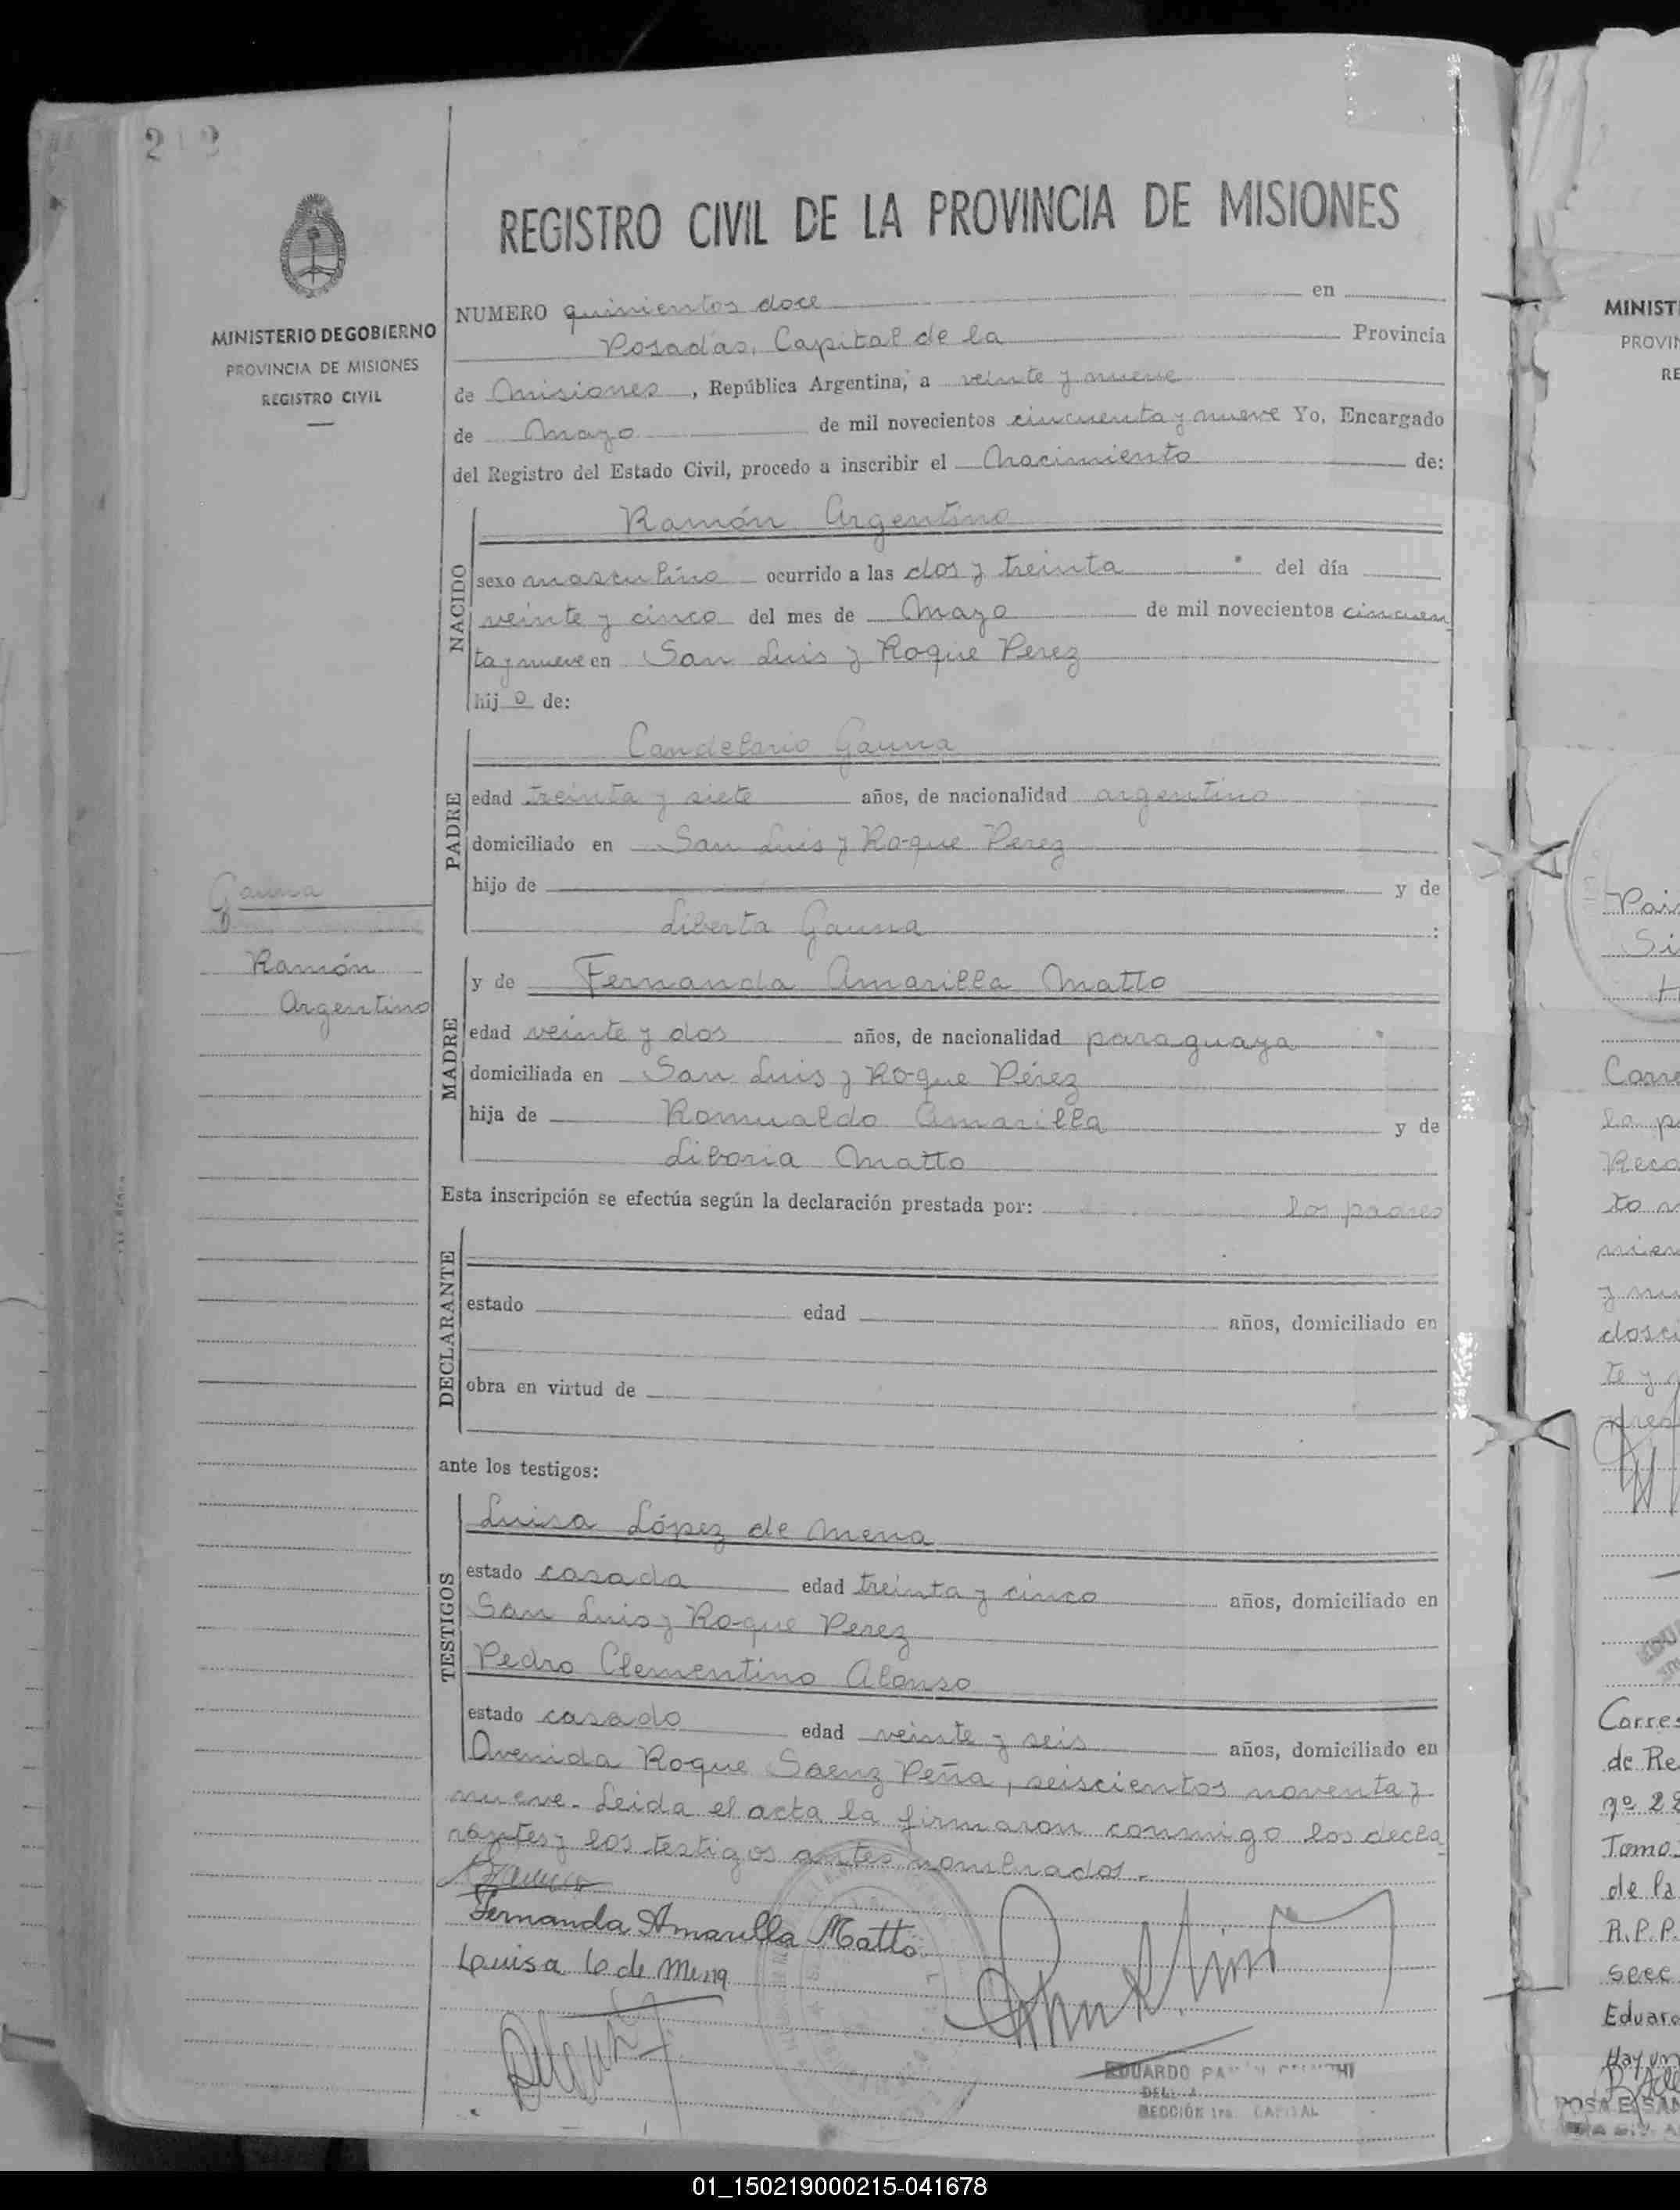 REGISTRO CIVIL DE LA PROVINCIA DE MISIONES
MINISTERIO DE GOBIERNO
PROVINCIA DE MISIONES
REGISTRO CIVIL
NUMERO quinientos doce en
Posadas, Capital de la Provincia
de Misiones, República Argentina, a veinte y nueve
de Mayo de mil novecientos cincuenta y nueve Yo, Encargado
del Registro del Estado Civil, procedo a inscribir el Nacimiento de:
NACIDO
Ramón Argentino
sexo masculino ocurrido a las dos y treinta del día
veinte y cinco del mes de Mayo de mil novecientos cincuen
ta y nueve en San Luis y Roque Perez
hij o de:
PADRE
Candelario Gauna
edad treinta y siete años, de nacionalidad argentino
domiciliado en San Luis y Roque Perez
hijo de y de
Liberta Gauna :
Gauna
Ramón
Argentino
MADRE
y de Fernanda Amarilla Matto
edad veinte y dos años, de nacionalidad paraguaya
domiciliada en San Luis y Roque Pérez
hija de Romualdo Amarilla y de
Liboria Matto
Esta inscripción se efectúa según la declaración prestada por: los padres
DECLARANTE
estado edad años, domiciliado en
obra en virtud de
ante los testigos:
TESTIGOS
Luisa López de Mena
estado casada edad treinta y cinco años, domiciliado en
San Luis y Roque Perez
Pedro Clementino Alonso
estado casado edad veinte y seis años, domiciliado en
Avenida Roque Saenz Peña, seiscientos noventa y
nueve. Leida el acta la firmaron conmigo los decla
rantes y los testigos antes nombrados.-
Gauna
Fernanda Amarilla Matto
Luisa L de Mena
EDUARDO
SECCIÓN 1ra. CAPITAL
MINIST
PROVIN
RE
Corres
de Re
Tomo
de la
R.P.P.
secc
Eduard
Hay un
01_150219000215-041678